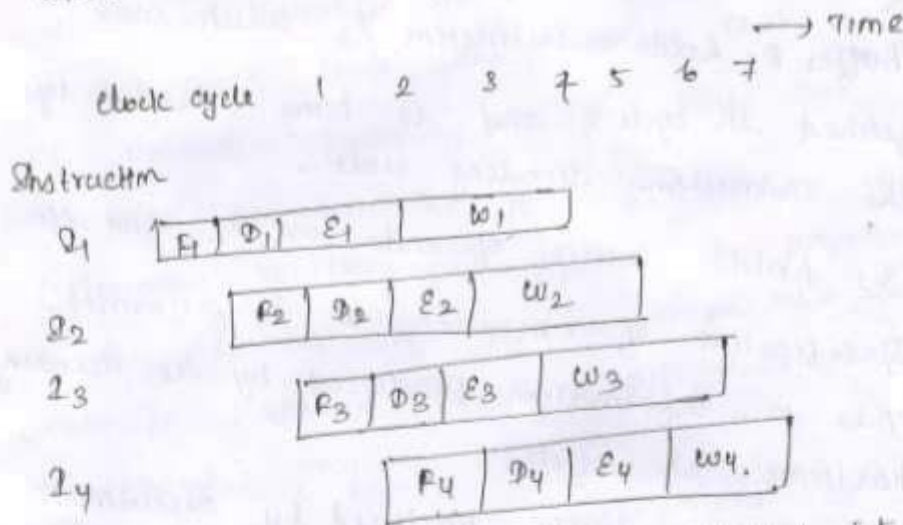 → Time
clock cycle 1 2 3 4 5 6 7
Instruction
I1 F1 D1 E1 W1
I2 F2 D2 E2 W2
I3 F3 D3 E3 W3
I4 F4 D4 E4 W4.